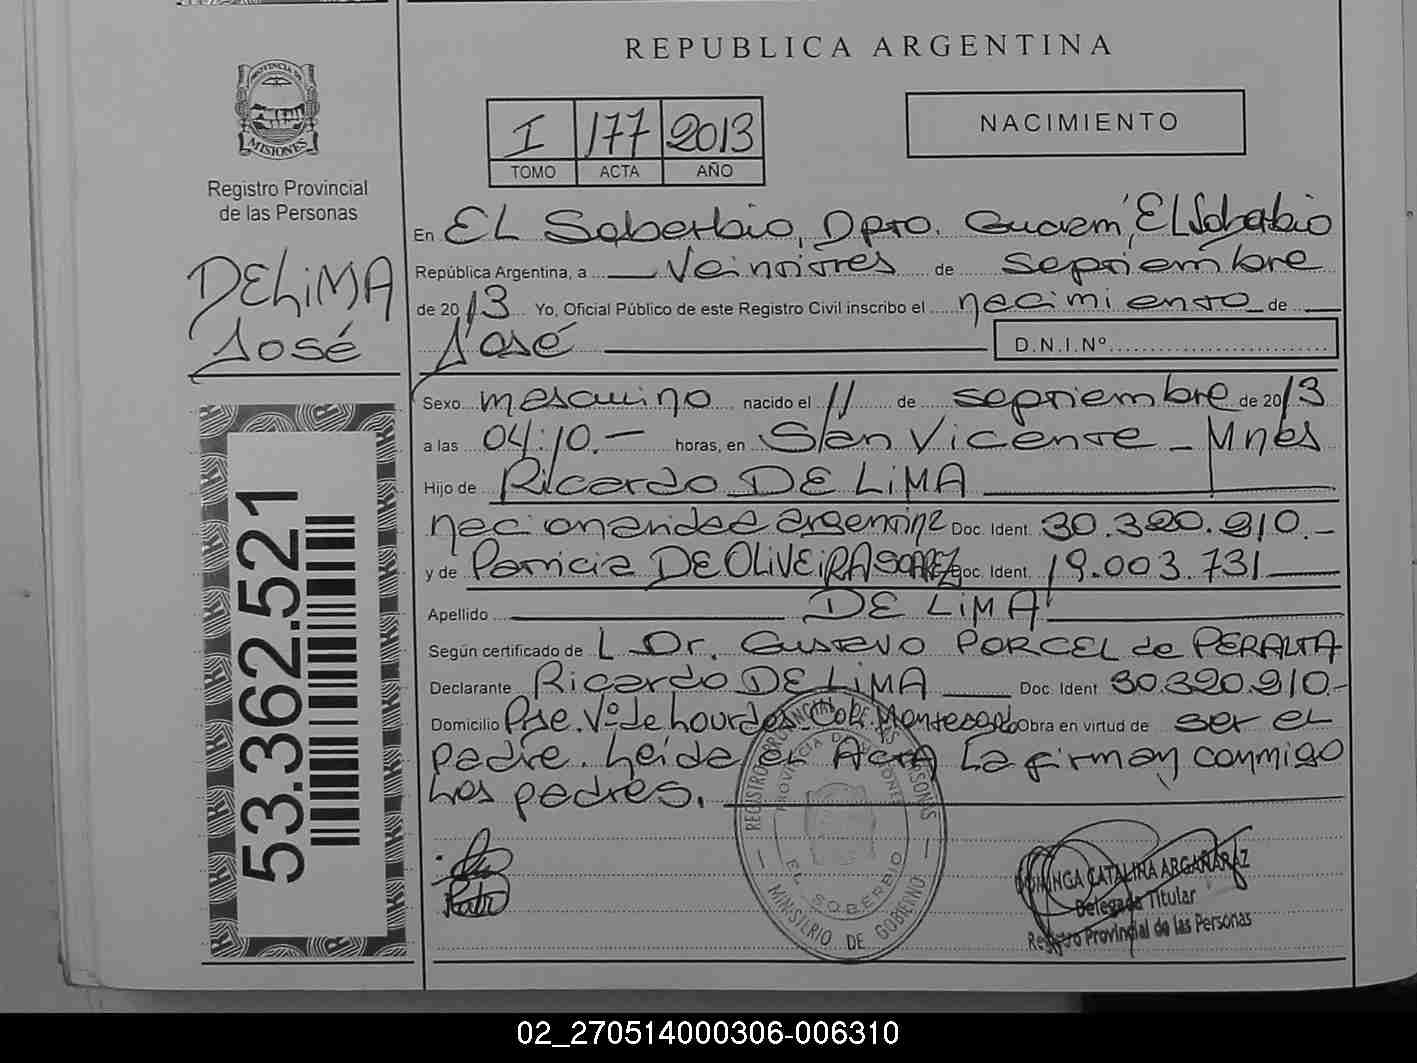 REPUBLICA ARGENTINA
PROVINCIA DE
MISIONES
Registro Provincial
de las Personas
I 177 2013
TOMO ACTA AÑO
NACIMIENTO
DE LiMA
José
53.362.521
En EL Soberbio, Dpto. Guaraní, El Soberbio
República Argentina, a veintitres de septiembre
de 2013 Yo, Oficial Público de este Registro Civil inscribo el nacimiento de
José D.N.I.Nº
Sexo masculino nacido el 11 de septiembre de 2013
a las 04:10.- horas, en San Vicente - Mnes
Hijo de Ricardo DE LiMA
nacionalidad argentina Doc. Ident. 30.320.210.-
y de Patricia DE OLiVEiRA SOAREZ Doc. Ident. 19.003.731
Apellido DE LiMA
Según certificado de L Dr. Gustavo PORCEL de PERALTA
Declarante Ricardo DE LiMA Doc. Ident 30.320.210.-
Domicilio Pje. Vº de Lourdes. Col. Montecarlo Obra en virtud de ser el
padre. Leída el Acta La firman conmigo
Los padres.
REGISTRO PROVINCIAL DE LAS PERSONAS
PROVINCIA DE MISIONES
EL SOBERBIO
MINISTERIO DE GOBIERNO
DOMINGA CATALINA ARGAÑARAZ
Delegada Titular
Registro Provincial de las Personas
02_270514000306-006310